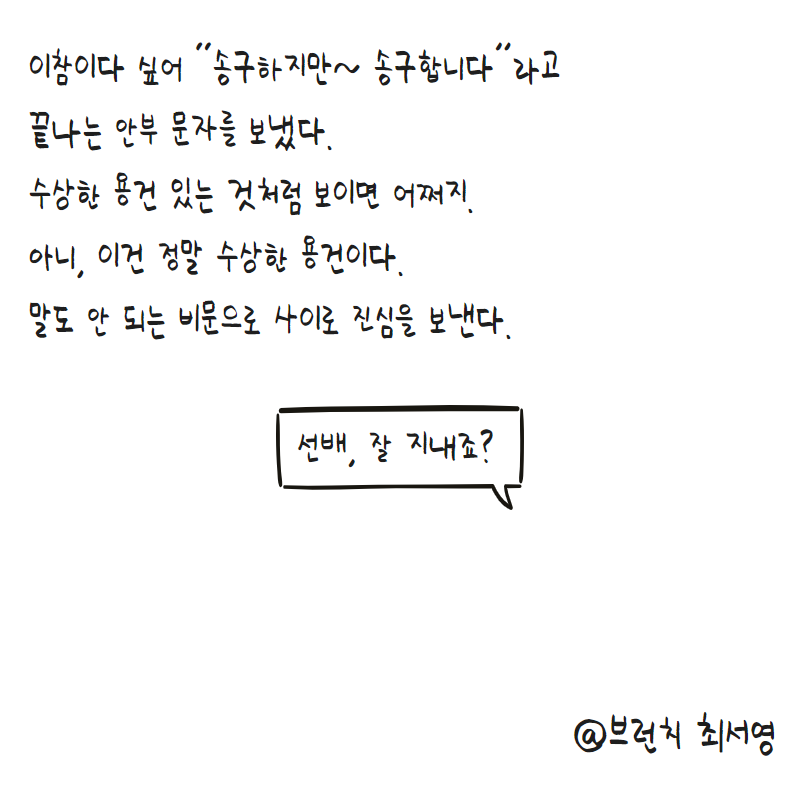 이참이다 싶어 "송구하지만~ 송구합니다"라고
끝나는 안부 문자를 보냈다.
수상한 용건 있는 것처럼 보이면 어쩌지.
아니, 이건 정말 수상한 용건이다.
말도 안 되는 비문으로 사이로 진심을 보낸다.
선배, 잘 지내죠?
@브런치 최서영